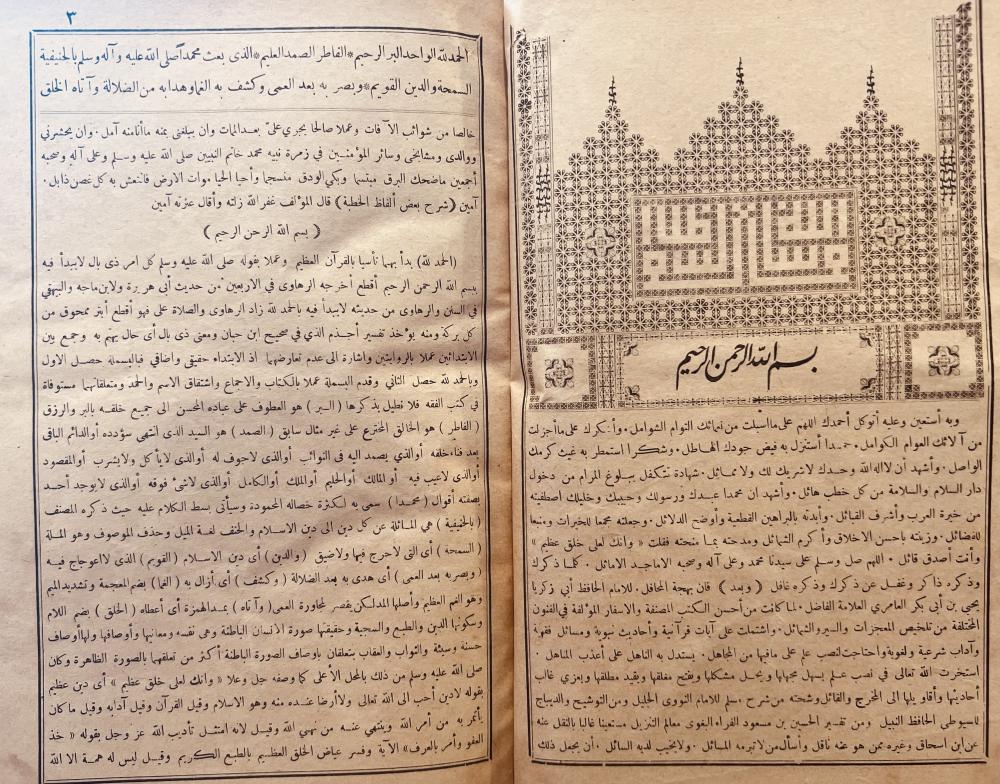 بسم الله الرحمن الرحيم
وبه أستعين وعليه أتوكل أحمدك اللهم على ما أسبلت من نعمائك التوام الشوامل ٠ وأشكرك على ما أجزلت
من آلائك العوام الكوامل ٠ حمدا أستنزل به فيض جودك الهاطل ٠ وشكرا استمطر به غيث كرمك
الواصل ٠ وأشهد أن لا اله الا الله وحدك لا شريك لك ولا مماثل ٠ شهادة تتكفل ببلوغ المرام من دخول
دار السلام والسلامة من كل خطب هائل ٠ وأشهد ان محمدا عبدك ورسولك وحبيبك وخليلك اصطفيته
من خيرة العرب وأشرف القبائل ٠ وأيدته بالبراهين القطعية وأوضح الدلائل ٠ وجعلته مجمعا للخيرات ومنبعا
للفضائل ٠ وزينته باحسن الاخلاق وأكرم الشمائل ومدحته بما منحته فقلت « وانك لعلى خلق عظيم »
وأنت أصدق قائل ٠ اللهم صل وسلم على سيدنا محمد وعلى آله وصحبه الاماجد الاماثل ٠ كلما ذكرك
وذكره ذاكر وغفل عن ذكرك وذكره غافل ( وبعد ) فان بهجة المحافل ٠ للامام الحافظ أبي زكريا
يحيى بن أبي بكر العامري العلامة الفاضل ٠ لما كانت من أحسن الكتب المصنفة والاسفار المؤلفة في الفنون
المختلفة من تلخيص المعجزات والسير والشمائل ٠ واشتملت على آيات قرآنية وأحاديث نبوية ومسائل فقهية
وآداب شرعية ولغوية احتاجت لنصب علم على ما فيها من المجاهل ٠ يستدل به الناهل على أعذب المناهل ٠
استخرت الله تعالى في نصب علم يسهل مجهلها ويحل مشكلها ويفتح مقفلها ويقيد مطلقها ويعزي غالب
أحاديثها وأقاويلها الى المخرج والقائل وشحته من شرح مسلم للامام النووى الجليل ومن التوشيح والديباج
للسيوطى الحافظ النبيل ومن تفسير الحسين بن مسعود الفراء البغوى معالم التنزيل مستعينا غالبا بالنقل عنه
عن ابن اسحاق وغيره ممن هو عنه ناقل وأسأل من لا تبرمه المسائل ٠ ولا يخيب لديه السائل ٠ أن يجعل ذلك
٣
الحمد لله الواحد البر الرحيم * الفاطر الصمد العليم * الذى بعث محمدا صلى الله عليه وآله وسلم بالحنيفية
السمحة والدين القويم * وبصر به بعد العمى وكشف به الغما وهدا به من الضلالة وآتاه الخلق
خالصا من شوائب الآفات وعملا صالحا يجري عليّ بعد الممات وان يبلغني بمنه ما أنا منه آمل ٠ وان يحشرني
ووالدى ومشايخى وسائر المؤمنين في زمرة نبيه محمد خاتم النبيين صلى الله عليه وسلم وعلى آله وصحبه
أجمعين ما ضحك البرق مبتسما وبكى الودق منسجما وأحيا الحيا موات الارض فانتعش به كل غصن ذابل ٠
آمين ( شرح بعض ألفاظ الخطبة ) قال المؤلف غفر الله زلته وأقال عثرته آمين
( بسم الله الرحمن الرحيم )
( الحمد لله ) بدأ بهما تأسيا بالقرآن العظيم وعملا بقوله صلى الله عليه وسلم كل امر ذى بال لا يبدأ فيه
ببسم الله الرحمن الرحيم أقطع أخرجه الرهاوى في الاربعين من حديث أبى هريرة ولابن ماجه والبيهقي
في السنن والرهاوى من حديثه لا يبدأ فيه بالحمد لله زاد الرهاوى والصلاة على فهو أقطع أبتر ممحوق من
كل بركة ومنه يؤخذ تفسير أجذم الذي في صحيح ابن حبان ومعنى ذى بال أى حال يهتم به وجمع بين
الابتدائين عملا بالروايتين واشارة الى عدم تعارضهما اذ الابتداء حقيقى واضافى فالبسملة حصل الاول
وبالحمد لله حصل الثاني وقدم البسملة عملا بالكتاب والاجماع واشتقاق الاسم والحمد ومتعلقاتهما مستوفاة
في كتب الفقه فلا نطيل بذكرها ( البر ) هو العطوف على عباده المحسن الى جميع خلقه بالبر والرزق
( الفاطر ) هو الخالق المخترع على غير مثال سابق ( الصمد ) هو السيد الذى انتهى سؤدده أو الدائم الباقى
بعد فناء خلقه أو الذي يصمد اليه في النوائب أو الذى لا جوف له أو الذى لا يأكل ولا يشرب أو المقصود
أو الذى لا عيب فيه أو المالك أو الحليم أو الملك أو الكامل أو الذى لا شئ فوقه أو الذى لا يوجد أحد
بصفته أقوال ( محمدا ) سمى به لكثرة خصاله المحمودة وسيأتى بسط الكلام عليه حيث ذكره المصنف
( بالحنيفية ) هي المائلة عن كل دين الى دين الاسلام والحنف لغة الميل وحذف الموصوف وهو الملة
( السمحة ) أى التى لا حرج فيها ولا ضيق ( والدين ) أى دين الاسلام ( القويم ) الذى لا اعوجاج فيه
( وبصر به بعد العمى ) أى هدى به بعد الضلالة ( وكشف ) أى أزال به ( الغما ) بضم المعجمة وتشديد الميم
وهو الغم العظيم وأصلها المد لكن يقصر لمجاورة العمى ( وآتاه ) بمد الهمزة أى أعطاه ( الخلق ) بضم اللام
وسكونها الدين والطبع والسجية وحقيقتها صورة الانسان الباطنة وهي نفسه ومعانيها وأوصافها ولها أوصاف
حسنة وسيئة والثواب والعقاب يتعلقان باوصاف الصورة الباطنة أكثر من تعلقهما بالصورة الظاهرة وكان
صلى الله عليه وسلم من ذلك بالمحل الأعلى كما وصفه جل وعلا « وانك لعلى خلق عظيم » أى دين عظيم
بقوله لا دين أحب الى الله تعالى ولا أرضا عنده منه وهو الاسلام وقيل القرآن وقيل آدابه وقيل ما كان
يأتمر به من أمر الله وينتهى عنه من نهي الله وقيل لانه امتثل تأديب الله عز وجل بقوله « خذ
العفو وأمر بالعرف » الآية وفسر عياض الخلق العظيم بالطبع الكريم وقيل ليس له همة الا الله